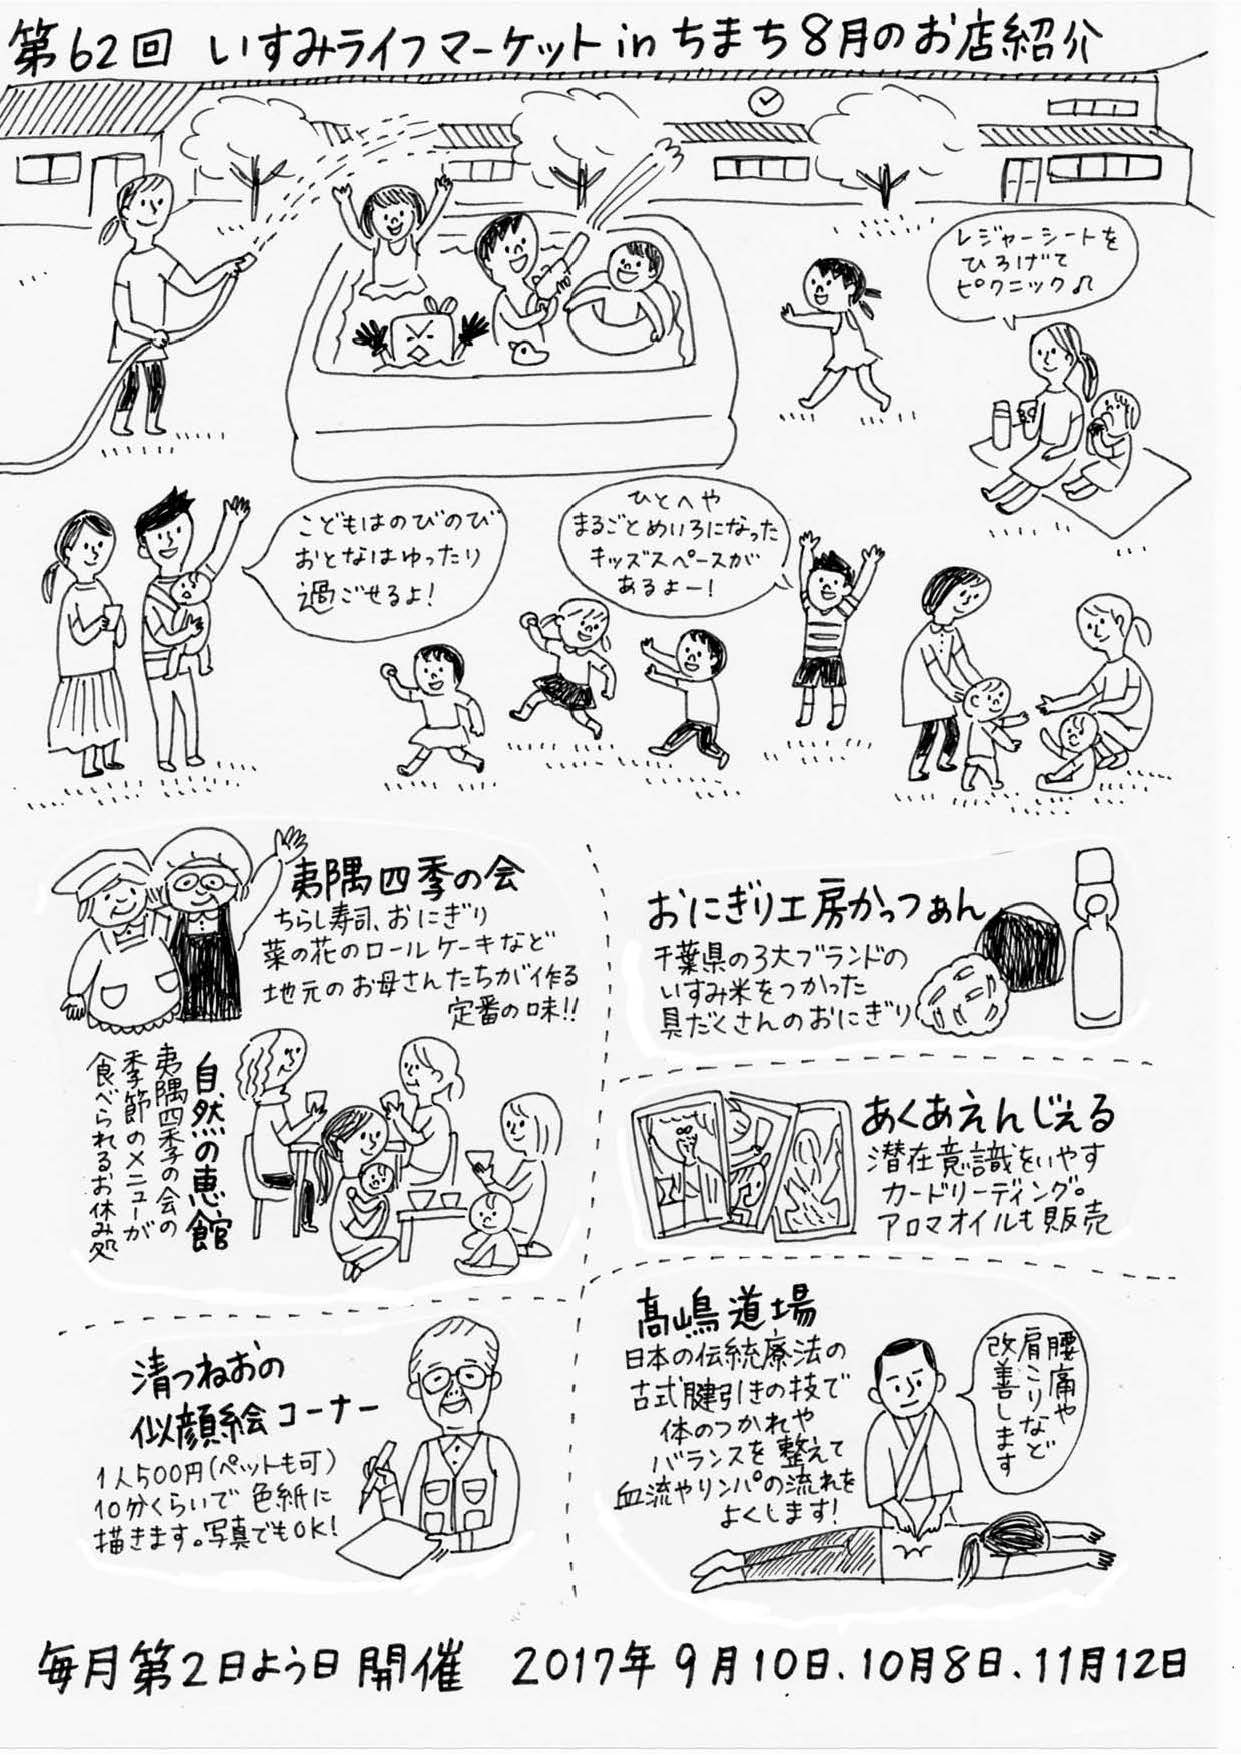 第62回 いすみライフマーケット in ちまち 8月のお店紹介
レジャーシートを
ひろげて
ピクニック♫
こどもはのびのび
おとなはゆったり
過ごせるよ!
ひとへや
まるごとめいろになった
キッズスペースが
あるよー!
夷隅四季の会
ちらし寿司、おにぎり
菜の花のロールケーキなど
地元のお母さんたちが作る
定番の味!!
自然の恵館
夷隅四季の会の
季節のメニューが
食べられるお休み処
清つねおの
似顔絵コーナー
1人500円(ペットも可)
10分くらいで 色紙に
描きます。写真でもOK!
おにぎり工房かっつぁん
千葉県の3大ブランドの
いすみ米をつかった
具だくさんのおにぎり
あくあえんじぇる
潜在意識をいやす
カードリーディング。
アロマオイルも販売
高嶋道場
日本の伝統療法の
古式腱引きの技で
体のつかれや
バランスを整えて
血流やリンパの流れを
よくします!
腰痛や
肩こりなど
改善します
毎月第2日よう日 開催 2017年 9月10日、10月8日、11月12日